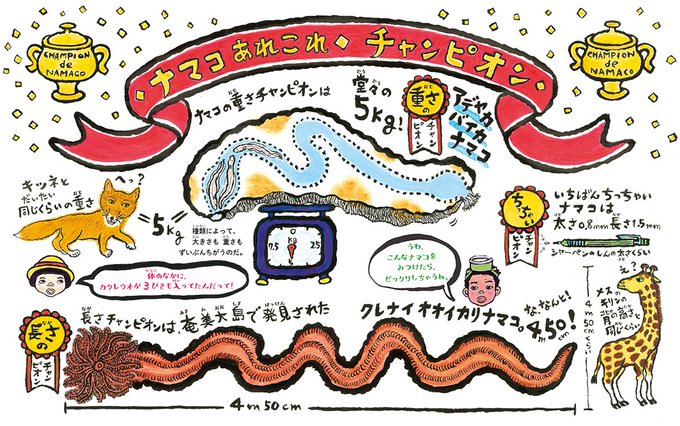 ナマコ あれこれ・チャンピオン
CHAMPION
de
NAMACO
CHAMPION
de
NAMACO
ナマコの重さチャンピオンは
堂々の
5kg!
重さの
チャンピオン
アデヤカ
バイカ
ナマコ
キツネと
だいたい
同じくらいの重さ
へっ?
=5kg=
種類によって、
大きさも 重さも
ずいぶんちがうのだ。
0
Kg
7.5
2.5
5
体のなかに、
カクレウオが3びきも入ってたんだって!
うわ、
こんなナマコを
みつけたら、
ビックリしちゃうわ。
ちっちゃい
チャンピオン
いちばんちっちゃい
ナマコは
太さ0.8mm 長さ1.5mm
シャーペンのしんの太さくらい
長さの
チャンピオン
長さチャンピオンは、奄美大島で発見された
クレナイオオイカリナマコ。
な、なんと!
4m50!
4m50cm
え?
メスのキリンの
背の高さと
同じくらい
4m50cmくらい